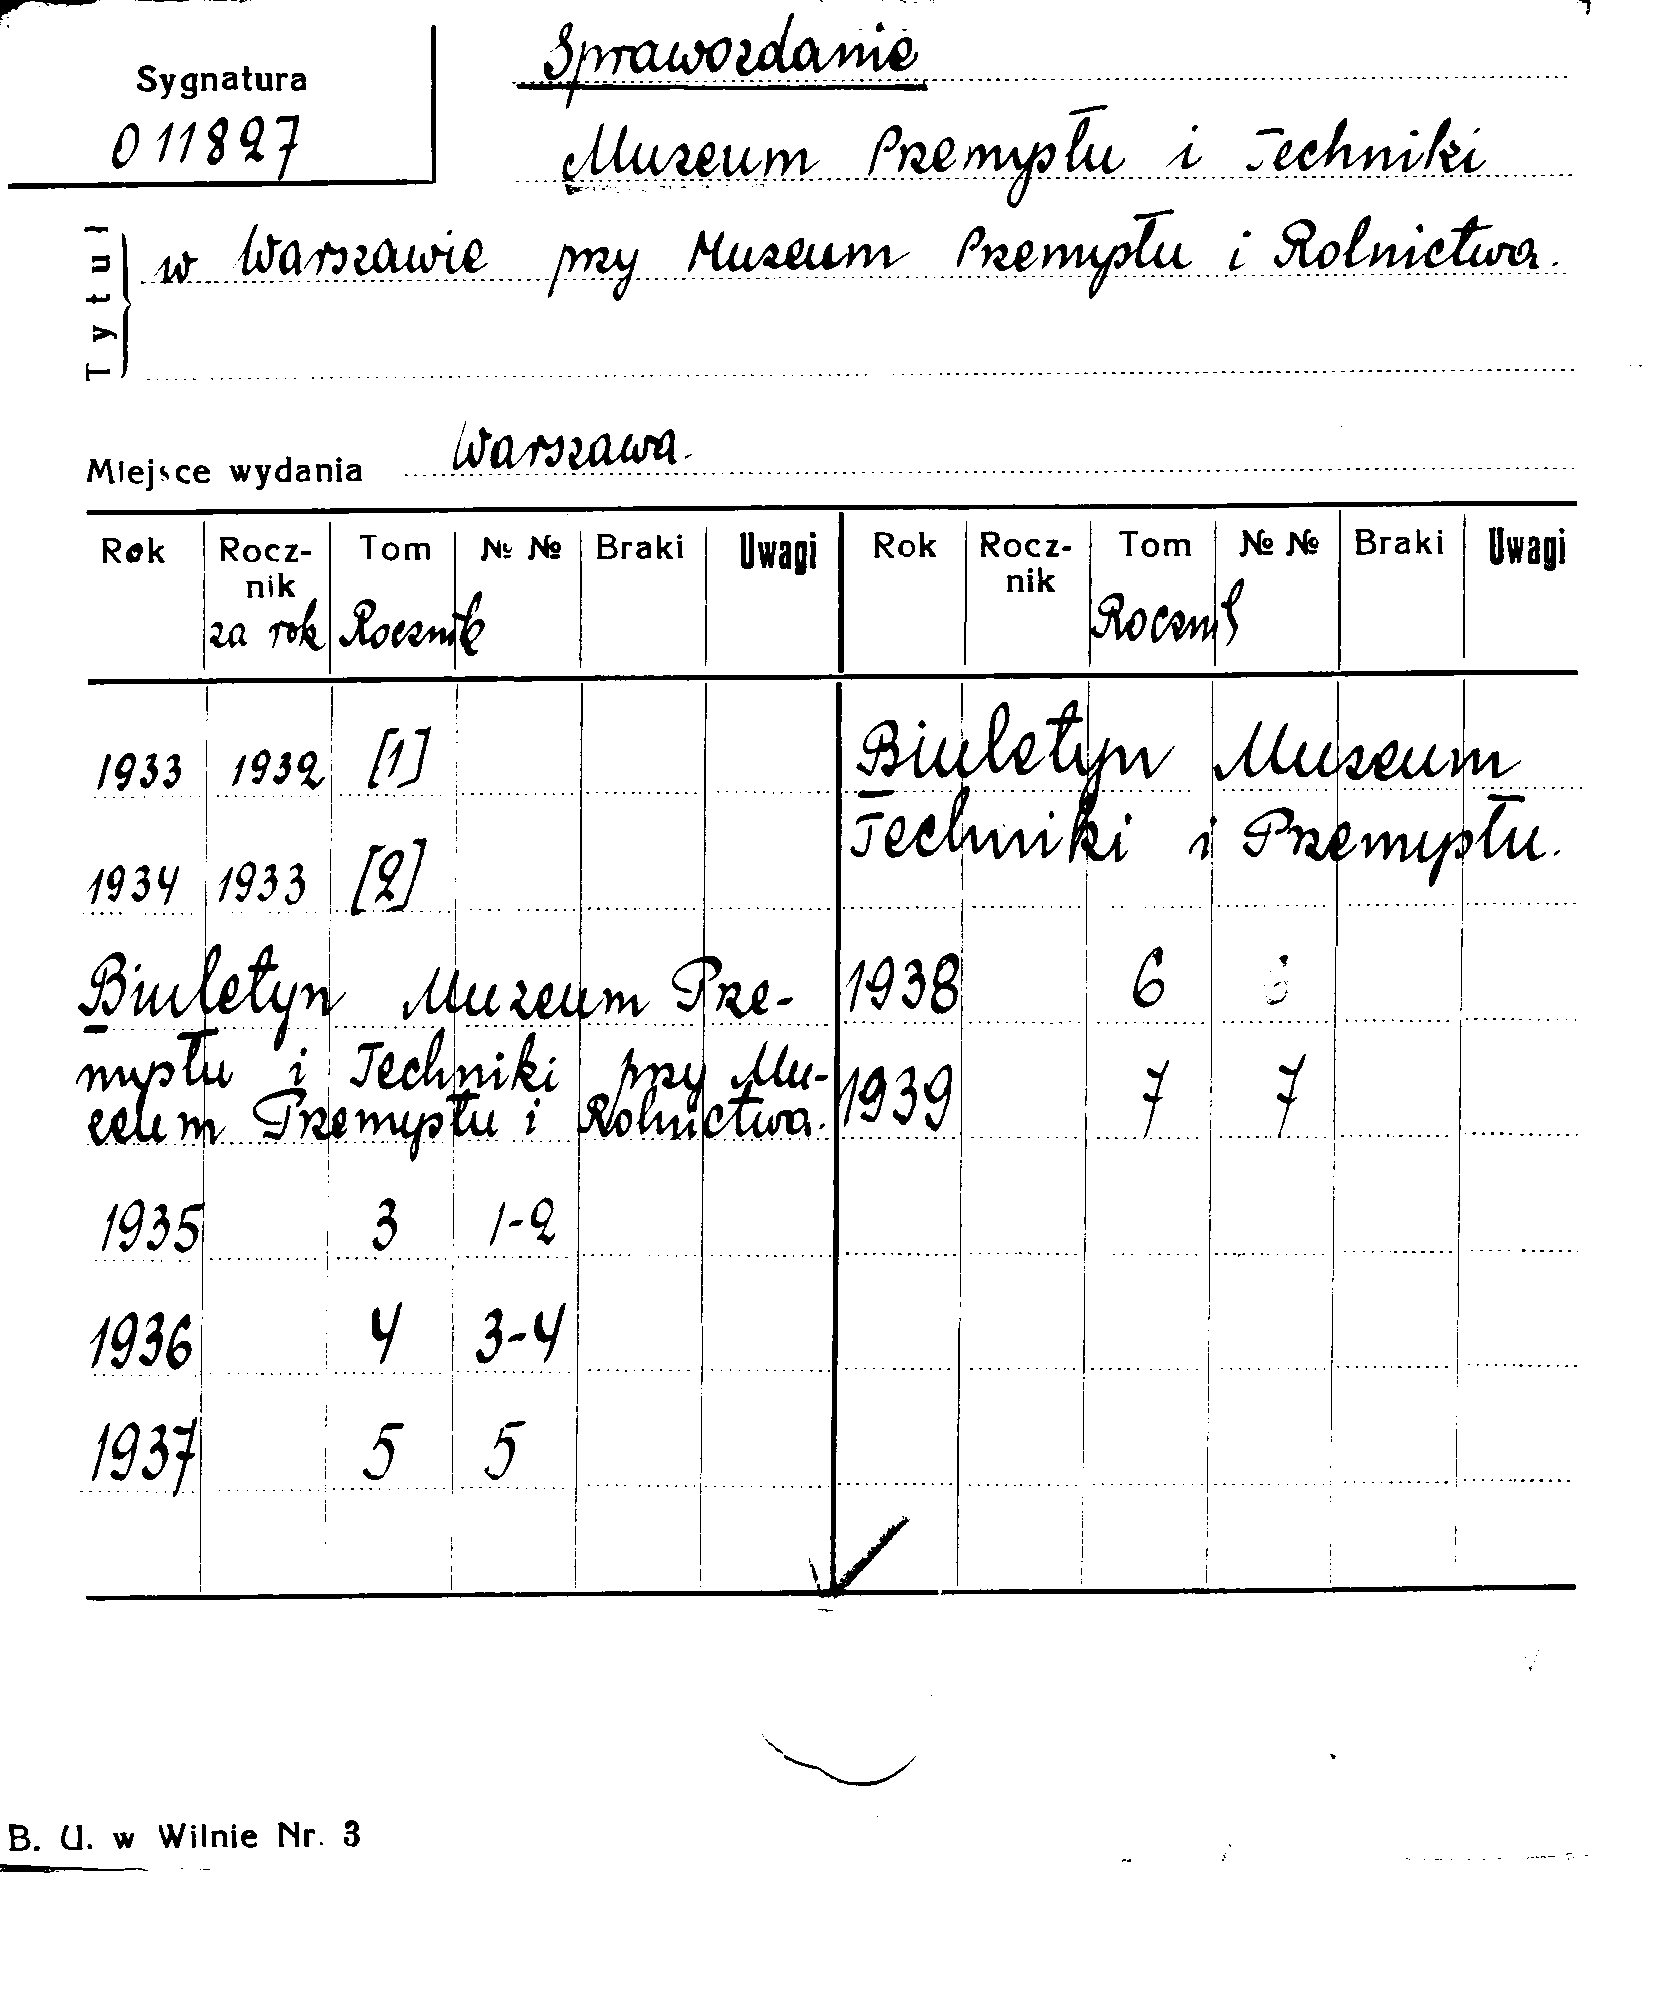 Sygnatura
011827
Sprawozdanie
Muzeum Przemysłu i Techniki
w Warszawie przy Muzeum Przemysłu i Rolnictwa.
Tytuł
Miejsce wydania Warszawa.
Rok Rocz-nik Tom № № Braki Uwagi Rok Rocz-nik Tom № № Braki Uwagi
za rok Rocznik Roczni
1933 1932 [1]
1934 1933 [2]
Biuletyn Muzeum Prze-
mysłu i Techniki przy Mu-
zeum Przemysłu i Rolnictwa.
1935 3 1-2
1936 4 3-4
1937 5 5
Biuletyn Muzeum
Techniki i Przemysłu.
1938 6 6
1939 7 7
B. U. w Wilnie Nr. 3